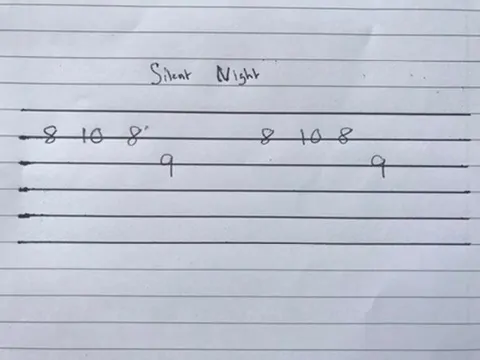 Silent Night
8 10 8 8 10 8
9 9